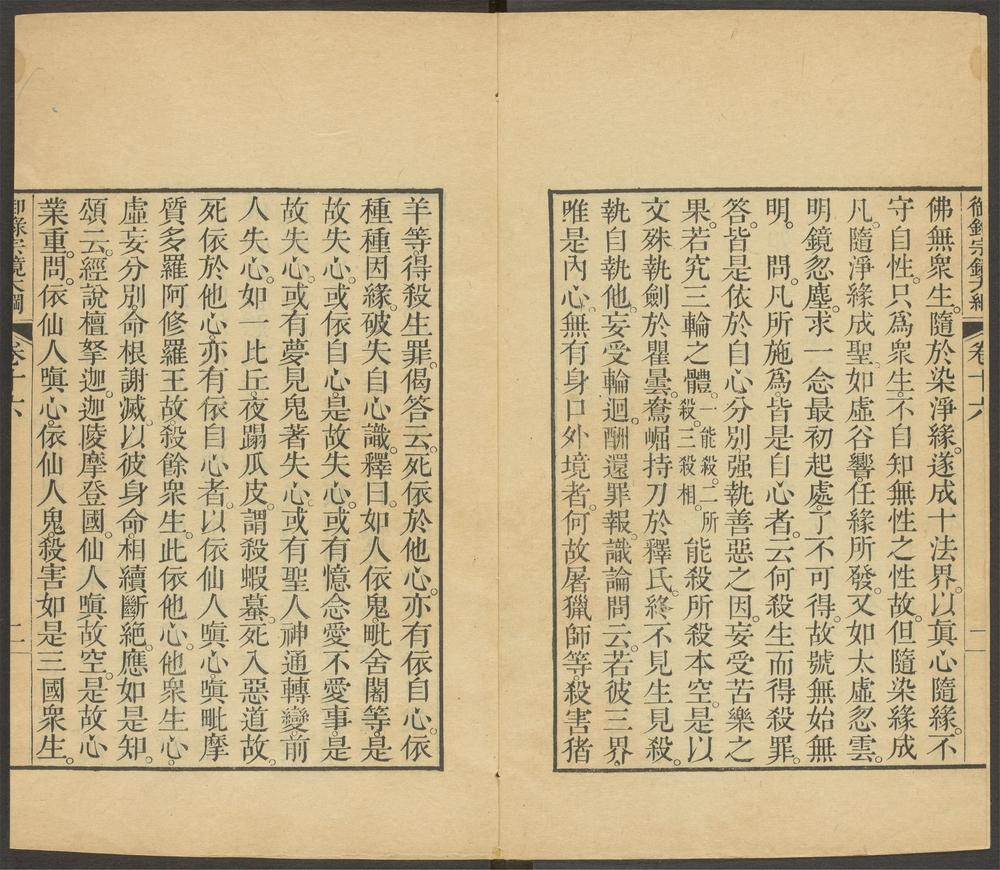 御錄宗鏡大綱 卷十六 二
佛無衆生。隨於染淨緣。遂成十法界。以眞心隨緣。不
守自性。只爲衆生。不自知無性之性故。但隨染緣成
凡。隨淨緣成聖。如虛谷響。任緣所發。又如太虛忽雲。
明鏡忽塵。求一念最初起處。了不可得。故號無始無
明。 問。凡所施爲。皆是自心者。云何殺生而得殺罪。
答。皆是依於自心分別。强執善惡之因。妄受苦樂之
果。若究三輪之體。一能殺。二所殺。三殺相。能殺所殺本空。是以
文殊執劍於瞿曇。鴦崛持刀於釋氏。終不見生見殺。
執自執他。妄受輪迴。酬還罪報。識論問云。若彼三界。
唯是內心。無有身口外境者。何故屠獵師等。殺害猪
羊等。得殺生罪。偈答云。死依於他心。亦有依自心。依
種種因緣。破失自心識。釋曰。如人依鬼。毗舍闍等。是
故失心。或依自心。是故失心。或有憶念愛不愛事。是
故失心。或有夢見鬼著失心。或有聖人神通轉變。前
人失心。如一比丘。夜蹋瓜皮。謂殺蝦蟇。死入惡道。故
死依於他心。亦有依自心者。以依仙人嗔心。嗔毗摩
質多羅阿修羅王。故殺餘衆生。此依他心。他衆生心。
虛妄分別。命根謝滅。以彼身命。相續斷絕。應如是知。
頌云。經說檀拏迦。迦陵摩登國。仙人嗔故空。是故心
業重。問。依仙人嗔心。依仙人鬼。殺害如是三國衆生。
御錄宗鏡大綱 卷十六 二